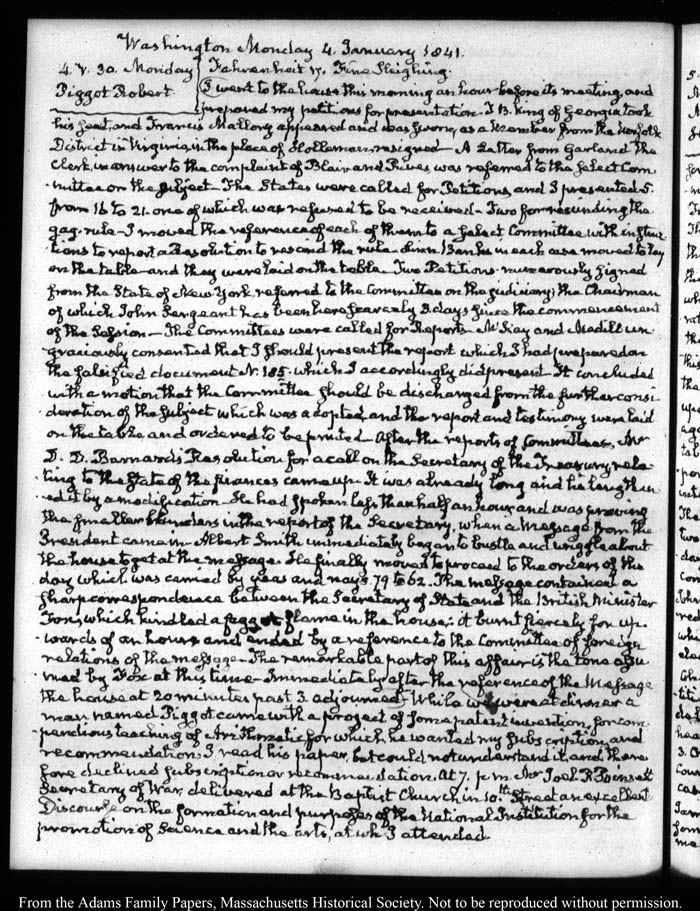 Washington Monday 4. January 1841.
4. V. 30. Monday
Piggot Robert
Fahrenheit 17. Fine Sleighing.
I went to the house this morning an hour before its meeting, and
prepared my petitions for presentation. T. B. King of Georgia took
his seat, and Francis Mallory appeared and was sworn, as a member from the Norfolk
District in Virginia, in the place of Holleman, resigned — A Letter from Garland the
Clerk, in answer to the complaint of Blair and Rives was referred to the Select Com
mittee on the subject — The States were called for Petitions, and I presented 5.
from 16 to 21. one of which was refused to be received — Two for rescinding the
gag-rule — I moved the reference of each of them to a select Committee with instruc
tions to report a Resolution to rescind the rule. Linn Banks in each case moved to lay
on the table — and they were laid on the table. Two Petitions numerously signed
from the State of New York, referred to the Committee on the Judiciary; the Chairman
of which John Sergeant has been here scarcely 3. days since the commencement
of the Session — The Committees were called for Reports — McKay and Medill un
graciously consented that I should present the report which I had prepared on
the falsified document N. 185. which I accordingly did present — It concluded
with a motion that the Committee should be discharged from the further consi
deration of the subject which was adopted, and the report and testimony were laid
on the table, and ordered to be printed. After the reports of Committees, Mr
D. D. Barnard's Resolution for a call on the Secretary of the Treasury rela
ting to the State of the finances came up. It was already long and he lengthen
ed it by a modification — He had spoken less than half an hour, and was proving
the smaller blunders in the report of the Secretary, when a Message from the
President came in — Albert Smith immediately began to bustle and wriggle about
the house to get at the message. He finally moved to proceed to the orders of the
day which was carried by yeas and nays 79 to 62. The message contained a
sharp correspondence between the Secretary of State and the British Minister
Fox, which kindled a faggot flame in the house: it burnt fiercely for up
wards of an hour, and ended by a reference to the Committee of foreign
relations of the message — The remarkable part of this affair is the tone assu
med by Fox at this time — Immediately after the reference of the Message
the house at 20 minutes past 3. adjourned — While we were at dinner a
man named Piggot came with a project of some patent invention, for com
pendious teaching of Arithmetic for which he wanted my subscription, and
recommendation; I read his paper, but could not understand it, and there
fore declined subscription or recommendation. At 7. p.m. Mr Joel R. Poinsett
Secretary of War, delivered at the Baptist Church in 10th Street an excellent
Discourse on the formation and purposes of the National Institution for the
promotion of Science and the arts, at wh I attended
From the Adams Family Papers, Massachusetts Historical Society. Not to be reproduced without permission.